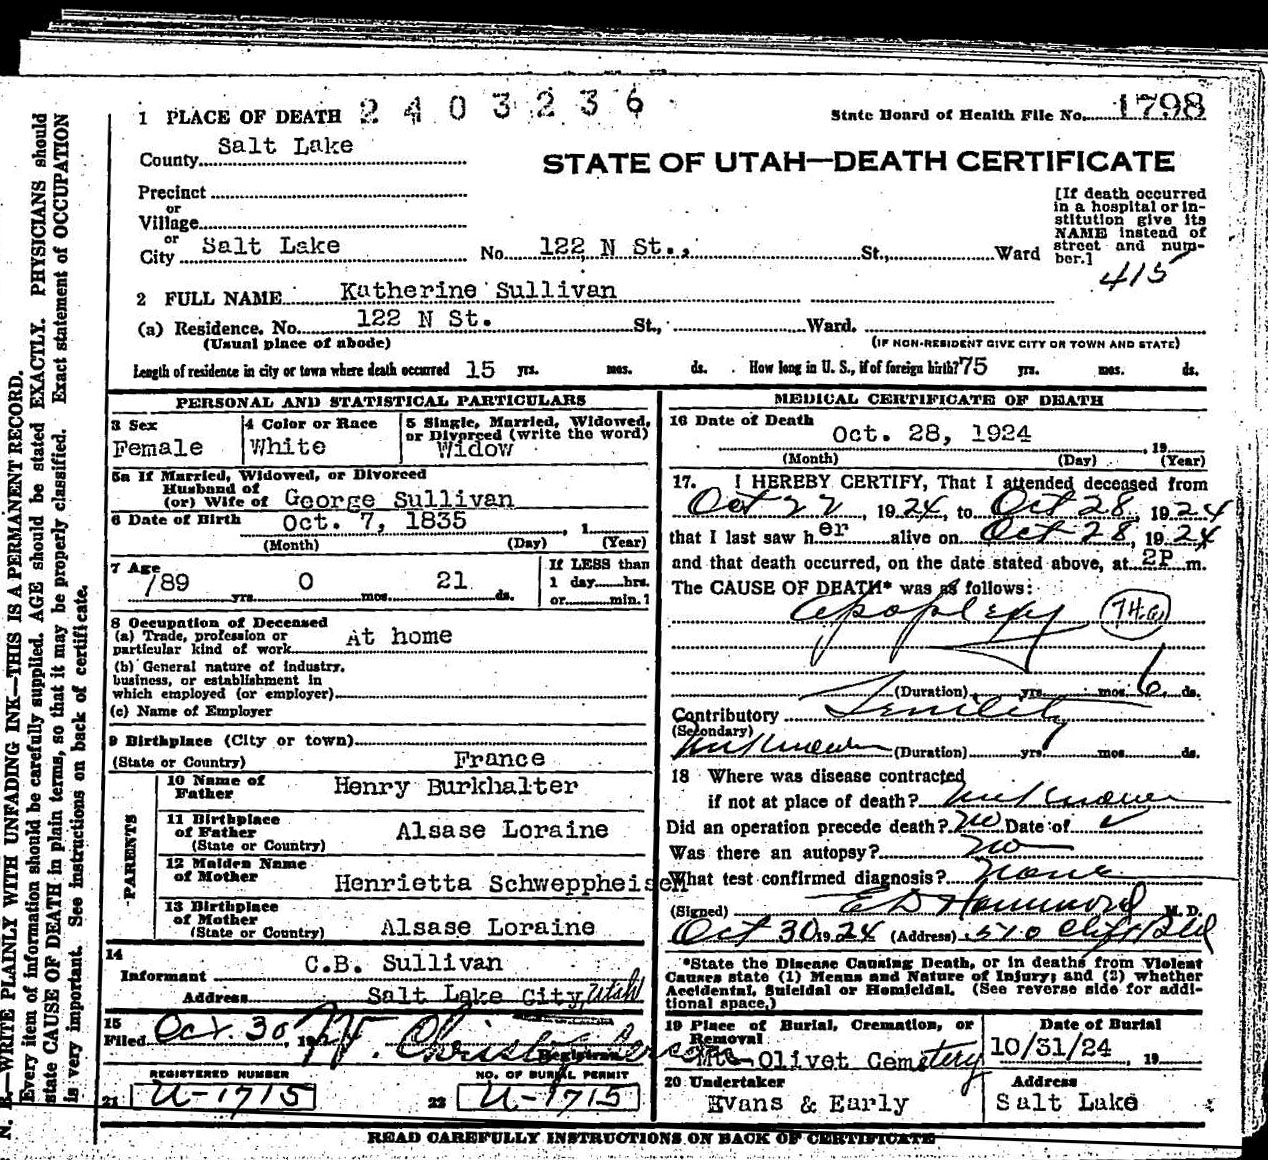 1 PLACE OF DEATH 2403236
State Board of Health File No. 1798
County Salt Lake
STATE OF UTAH—DEATH CERTIFICATE
Precinct
or
Village
or
City Salt Lake No. 122 N St., St., Ward
[If death occurred
in a hospital or in-
stitution give its
NAME instead of
street and num-
ber.]
415
2 FULL NAME Katherine Sullivan
(a) Residence. No. 122 N St. St., Ward.
(Usual place of abode) (IF NON-RESIDENT GIVE CITY OR TOWN AND STATE)
Length of residence in city or town where death occurred 15 yrs. mos. ds. How long in U. S., if of foreign birth? 75 yrs. mos. ds.
PERSONAL AND STATISTICAL PARTICULARS
3 Sex
Female
4 Color or Race
White
5 Single, Married, Widowed,
or Divorced (write the word)
Widow
5a If Married, Widowed, or Divorced
Husband of
(or) Wife of George Sullivan
6 Date of Birth Oct. 7, 1835, 1
(Month) (Day) (Year)
7 Age
89 yrs. 0 mos. 21 ds.
If LESS than
1 day hrs.
or min.?
8 Occupation of Deceased
(a) Trade, profession or
particular kind of work At home
(b) General nature of industry,
business, or establishment in
which employed (or employer)
(c) Name of Employer
9 Birthplace (City or town)
(State or Country) France
PARENTS
10 Name of
Father Henry Burkhalter
11 Birthplace
of Father Alsase Loraine
(State or Country)
12 Maiden Name
of Mother Henrietta Schweppheisen
13 Birthplace
of Mother Alsase Loraine
(State or Country)
14
Informant C.B. Sullivan
Address Salt Lake City, Utah
15
Filed Oct. 30, 19
Registrar
REGISTERED NUMBER NO. OF BURIAL PERMIT
21 U-1715 22 U-1715
MEDICAL CERTIFICATE OF DEATH
16 Date of Death
Oct. 28, 1924, 19
(Month) (Day) (Year)
17. I HEREBY CERTIFY, That I attended deceased from
Oct 22, 1924, to Oct 28, 1924
that I last saw her alive on Oct 28, 1924
and that death occurred, on the date stated above, at 2P m.
The CAUSE OF DEATH* was as follows:
apoplexy
(Duration) yrs. mos. 6 ds.
Contributory Senility
(Secondary)
unknown (Duration) yrs. mos. ds.
18 Where was disease contracted
if not at place of death? unknown
Did an operation precede death? no Date of
Was there an autopsy? no
What test confirmed diagnosis? none
(Signed) E D Hammond M. D.
Oct 30 1924 (Address) 510 Clift Bld
*State the Disease Causing Death, or in deaths from Violent
Causes state (1) Means and Nature of Injury; and (2) whether
Accidental, Suicidal or Homicidal. (See reverse side for addi-
tional space.)
19 Place of Burial, Cremation, or
Removal
Mt. Olivet Cemetery
Date of Burial
10/31/24 19
20 Undertaker
Evans & Early
Address
Salt Lake
READ CAREFULLY INSTRUCTIONS ON BACK OF CERTIFICATE
N. B.—WRITE PLAINLY WITH UNFADING INK—THIS IS A PERMANENT RECORD.
Every item of information should be carefully supplied. AGE should be stated EXACTLY. PHYSICIANS should
state CAUSE OF DEATH in plain terms, so that it may be properly classified. Exact statement of OCCUPATION
is very important. See instructions on back of certificate.